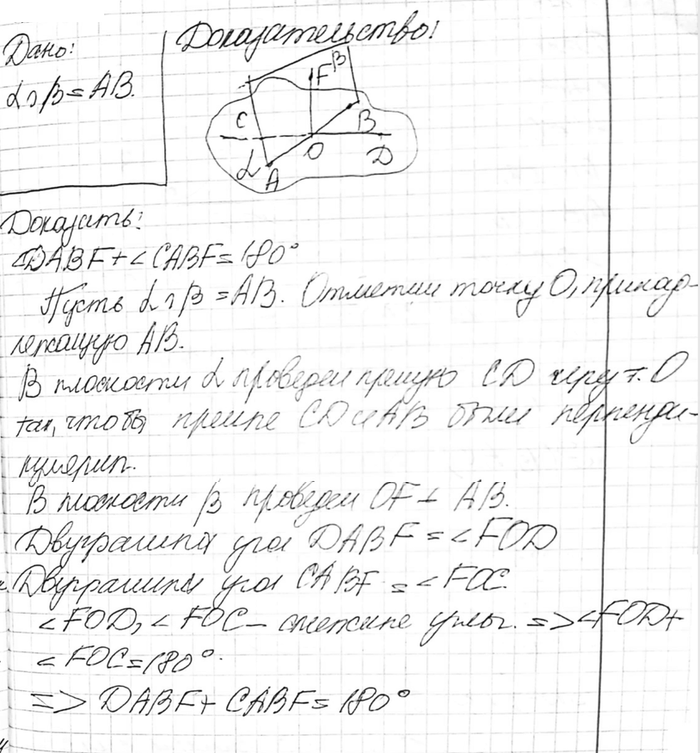 Дано:
α∩β=AB.
Доказательство:
F β
C B
α O D
A
Доказать:
∠DABF+∠CABF=180°
Пусть α∩β=AB. Отметим точку O, принад-
лежащую AB.
В плоскости α проведем прямую CD через т. O
так, чтобы прямые CD и AB были перпенди-
кулярны.
В плоскости β проведем OF⊥AB.
Двугранный угол DABF=∠FOD
Двугранный угол CABF=∠FOC.
∠FOD, ∠FOC – смежные углы. => ∠FOD+
∠FOC=180°.
=> DABF+CABF=180°